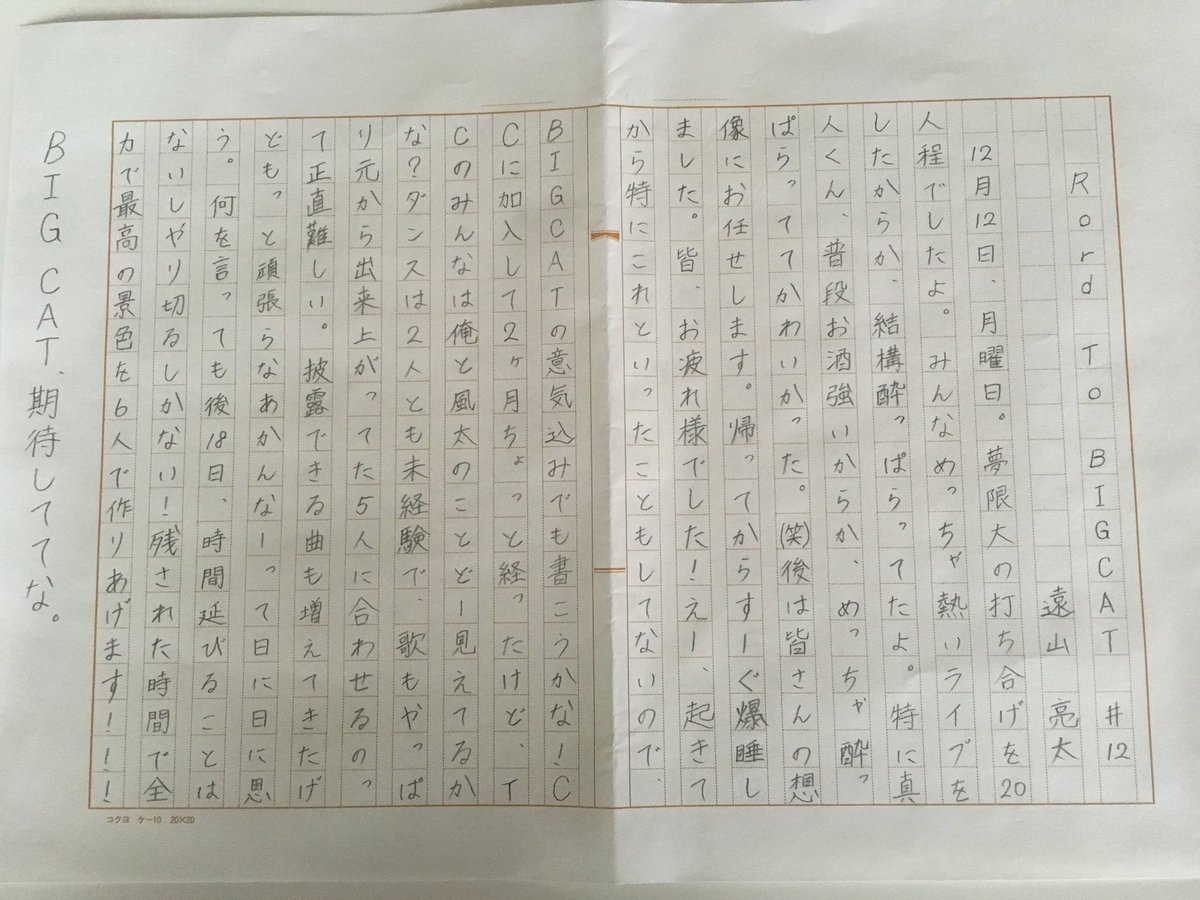 Rord To BIGCAT #12
遠山 亮太
12月12日、月曜日。夢限大の打ち合げを20
人程でしたよ。みんなめっちゃ熱いライブを
したからか、結構酔っぱらってたよ。特に真
人くん、普段お酒強いからか、めっちゃ酔っ
ぱらっててかわいかった。(笑)後は皆さんの想
像にお任せします。帰ってからすーぐ爆睡し
ました。皆、お疲れ様でした!えー、起きて
から特にこれといったこともしてないので、
BIGCATの意気込みでも書こうかな!C
Cに加入して2ヶ月ちょっと経ったけど、イ
Cのみんなは俺と風太のことどー見えてるか
な?ダンスは2人とも未経験で、歌もやっぱ
り元から出来上がってた5人に合わせるのっ
て正直難しい。披露できる曲も増えてきたけ
ども、っと頑張らなあかんなーって日に日に思
う。何を言っても後18日、時間延びることは
ないしやり切るしかない!残された時間で全
力で最高の景色を6人で作りあげます!!!
BIG CAT、期待しててな。
コクヨ ケー10 20×20